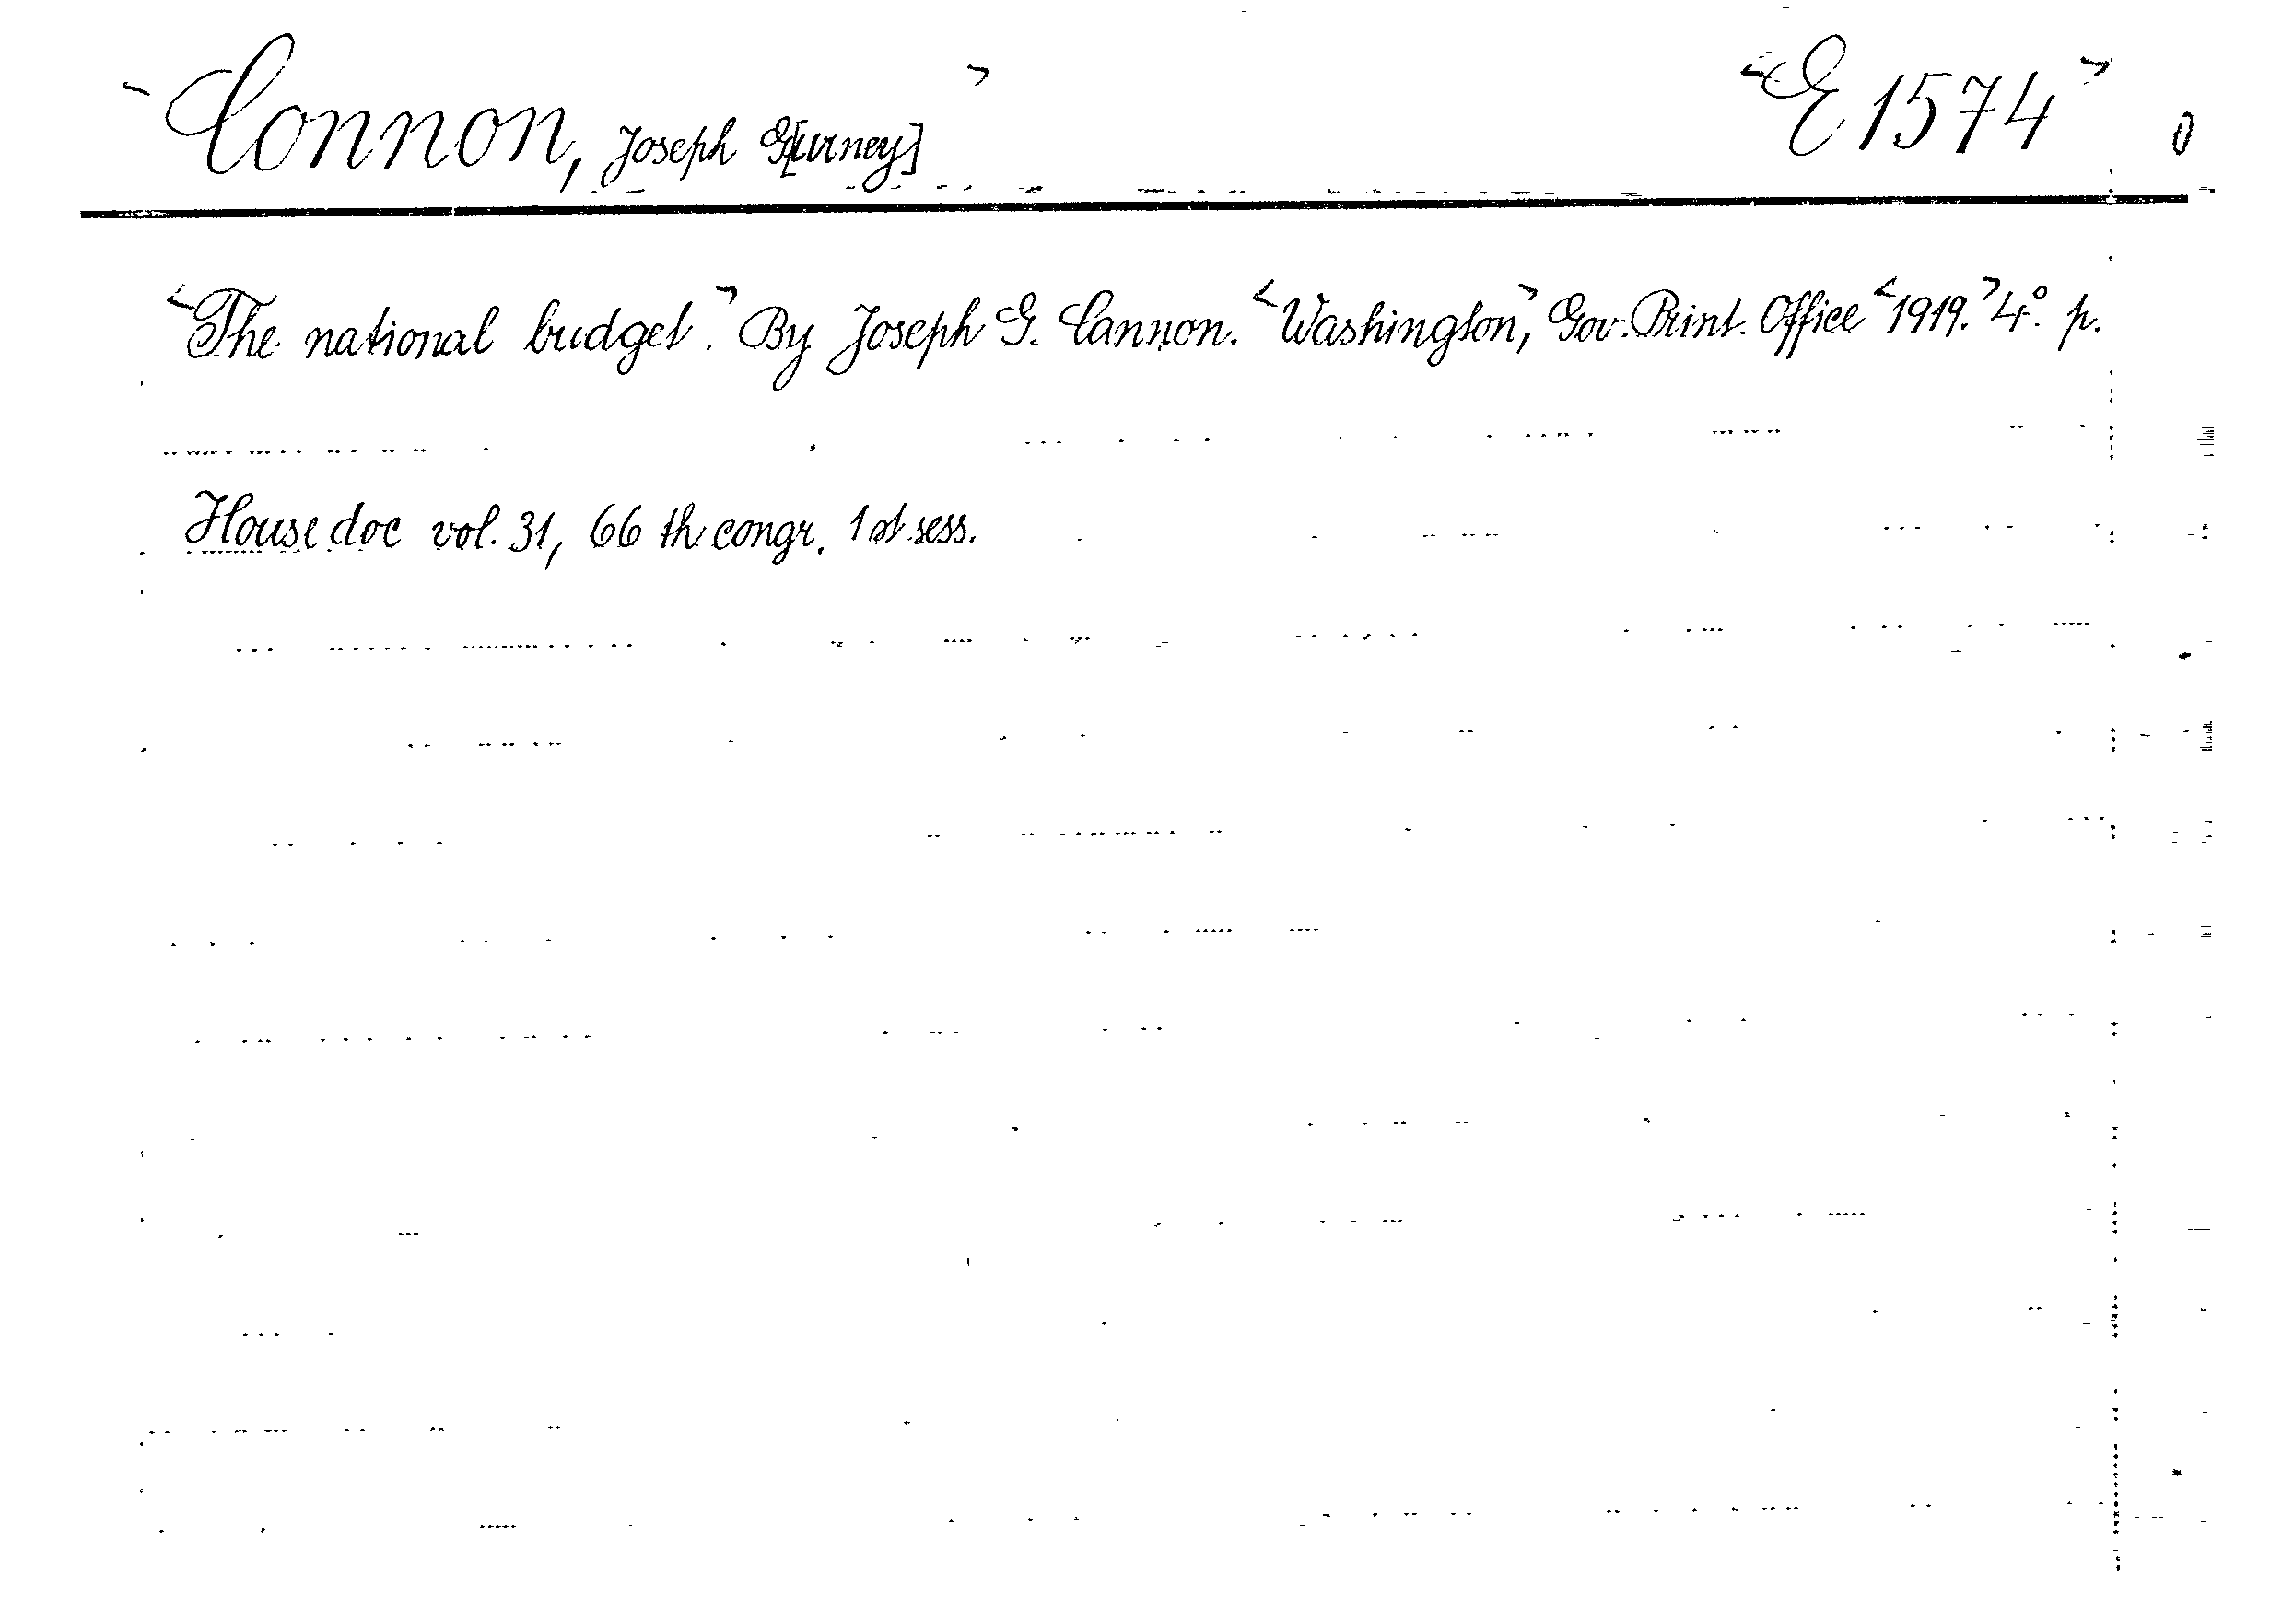 <Connon, Joseph G[urney]> <E 1574> 0
<The national budget.> By Joseph G. Cannon. <Washington,> Gov. Print. Office <1919.> 4° p.
House doc vol. 31, 66 th congr. 1 st sess.